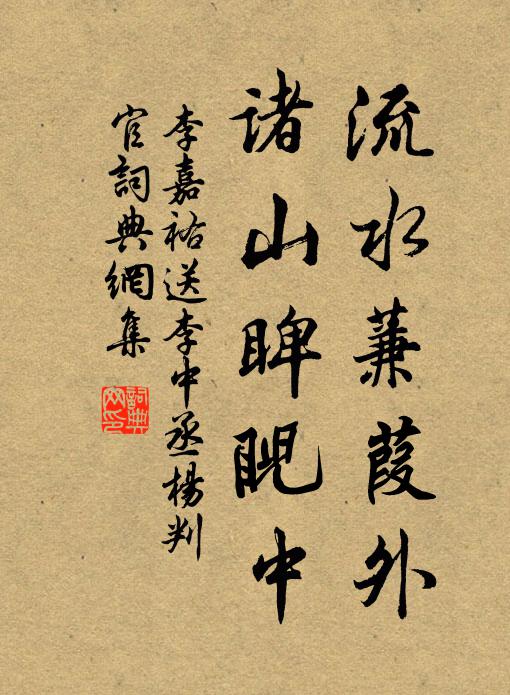 流水蒹葭外
诸山睥睨中
李嘉祐送李中丞杨判
官詞典網集
詞典
网印